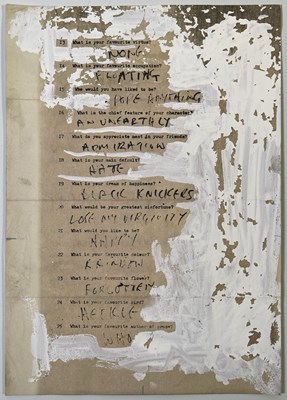 13 What is your favourite virtue?
NONE
14 What is your favourite occupation?
FLOATING
15 Who would you have liked to be?
ANYTHING
16 What is the chief feature of your character?
AN UNEARTHLY
17 What do you appreciate most in your friends?
ADMIRATION
18 What is your main default?
HATE
19 What is your dream of happiness?
BLACK KNICKERS
20 What would be your greatest misfortune?
LOSE MY VIRGINITY
21 What would you like to be?
HAPPY
22 What is your favourite colour?
23 What is your favourite flower?
FORGOTTEN
24 What is your favourite bird?
HECKLE
25 What is your favourite author of prose?